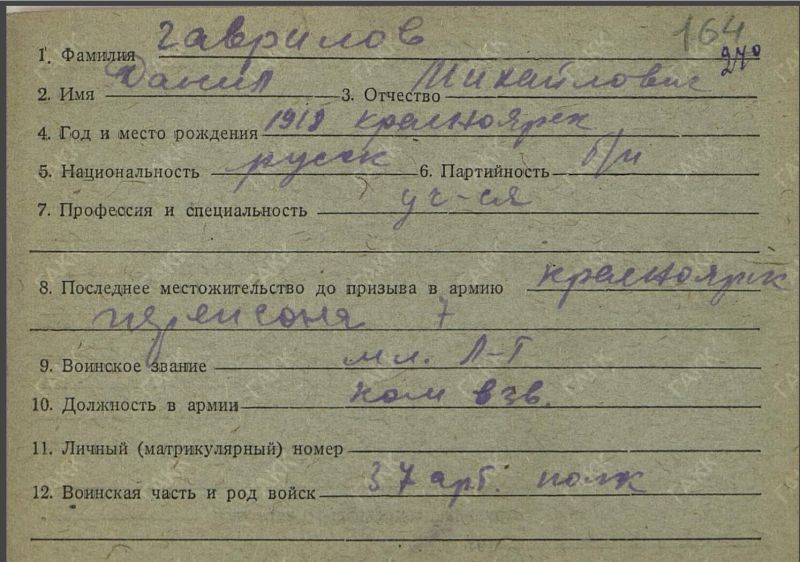 164
1. Фамилия Гаврилов 270
2. Имя Данил 3. Отчество Михайлович
4. Год и место рождения 1918 Красноярск
5. Национальность русск 6. Партийность б/п
7. Профессия и специальность уч-ся
8. Последнее местожительство до призыва в армию Красноярск
7
9. Воинское звание мл. л-т
10. Должность в армии ком взв.
11. Личный (матрикулярный) номер
12. Воинская часть и род войск 37 арт. полк